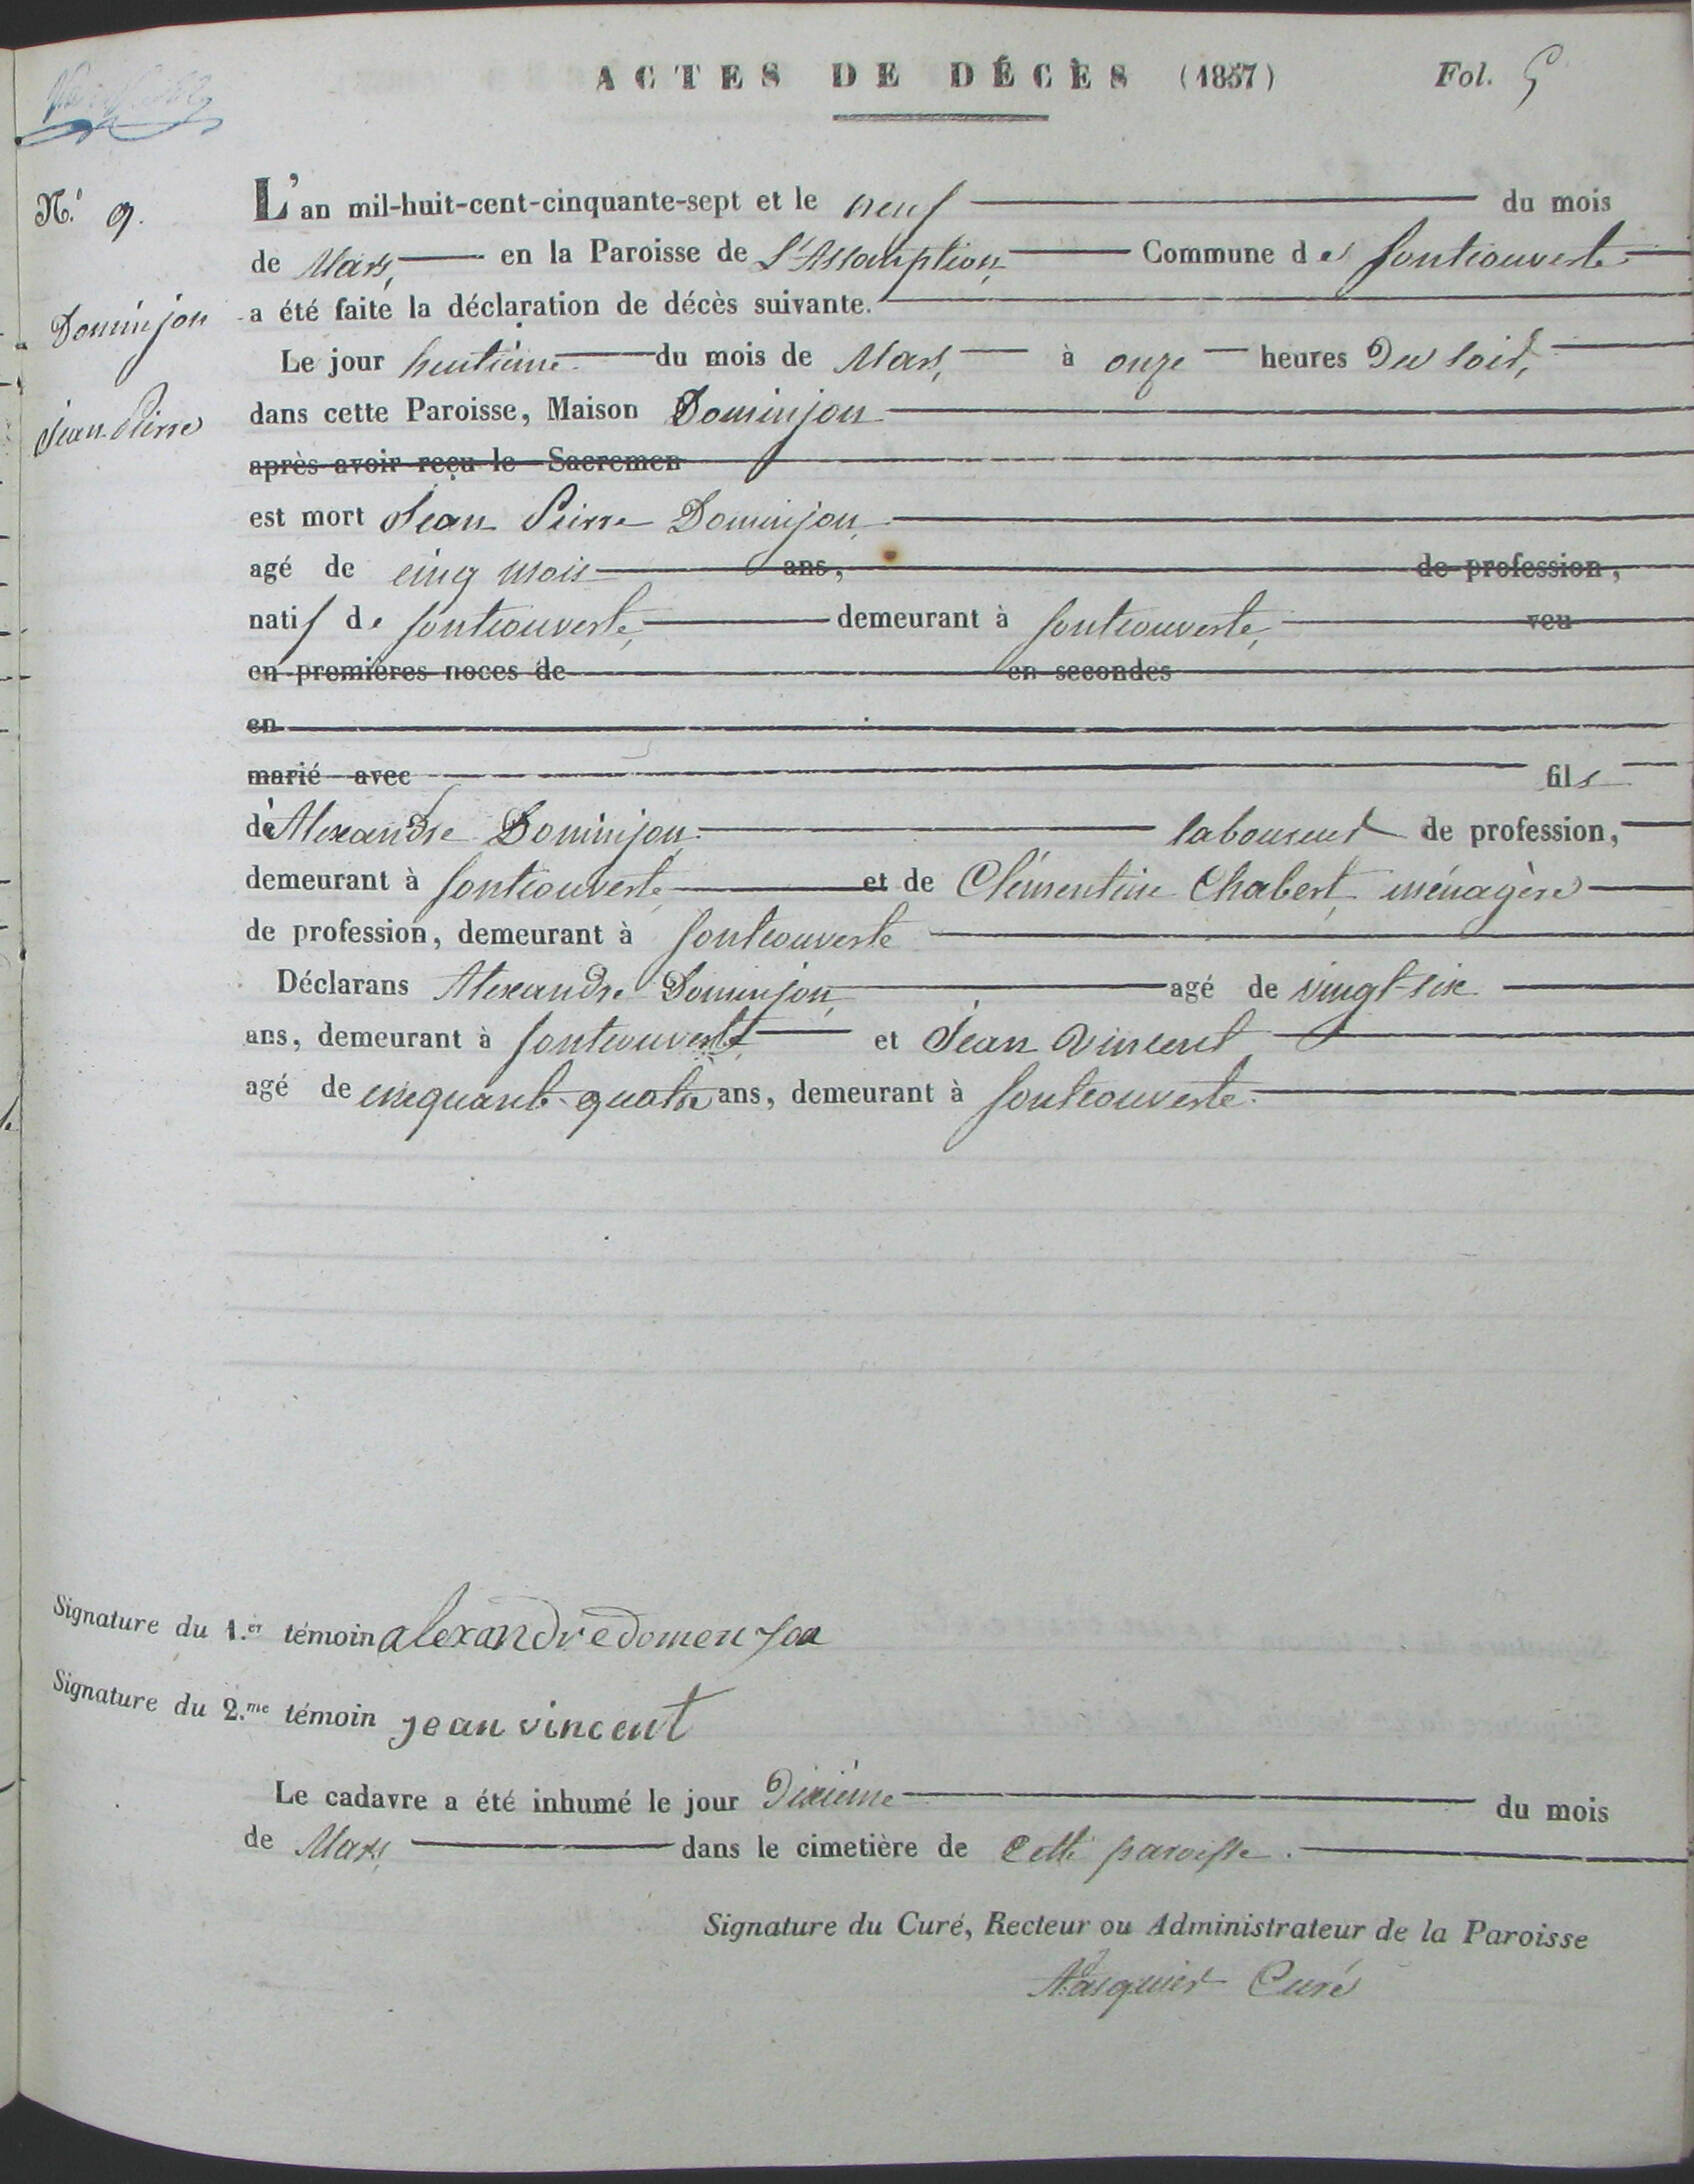 ACTES DE DÉCÈS (1857) Fol. 5
N.° 9.
Dominjon
Jean-Pierre
L'an mil-huit-cent-cinquante-sept et le neuf du mois
de Mars, en la Paroisse de L'Assomption, Commune de fontcouverte
a été faite la déclaration de décès suivante.
Le jour huitième du mois de Mars, à onze heures Du soir,
dans cette Paroisse, Maison Dominjon
après avoir reçu le Sacremen
est mort Jean Pierre Dominjon,
agé de cinq mois ans, de profession,
natif de fontcouverte, demeurant à fontcouverte, veu
en premières noces de en secondes
en
marié avec fils
de Alexandre Dominjon laboureur de profession,
demeurant à fontcouverte, et de Clémentine Chabert, ménagère
de profession, demeurant à fontcouverte
Déclarans Alexandre Dominjon, agé de vingt-six
ans, demeurant à fontcouverte, et Jean Vincent
agé de cinquante-quatre ans, demeurant à fontcouverte.
Signature du 1.er témoin alexandre domen jon
Signature du 2.me témoin jean vincent
Le cadavre a été inhumé le jour Dixième du mois
de Mars, dans le cimetière de Cette paroisse.
Signature du Curé, Recteur ou Administrateur de la Paroisse
Curé